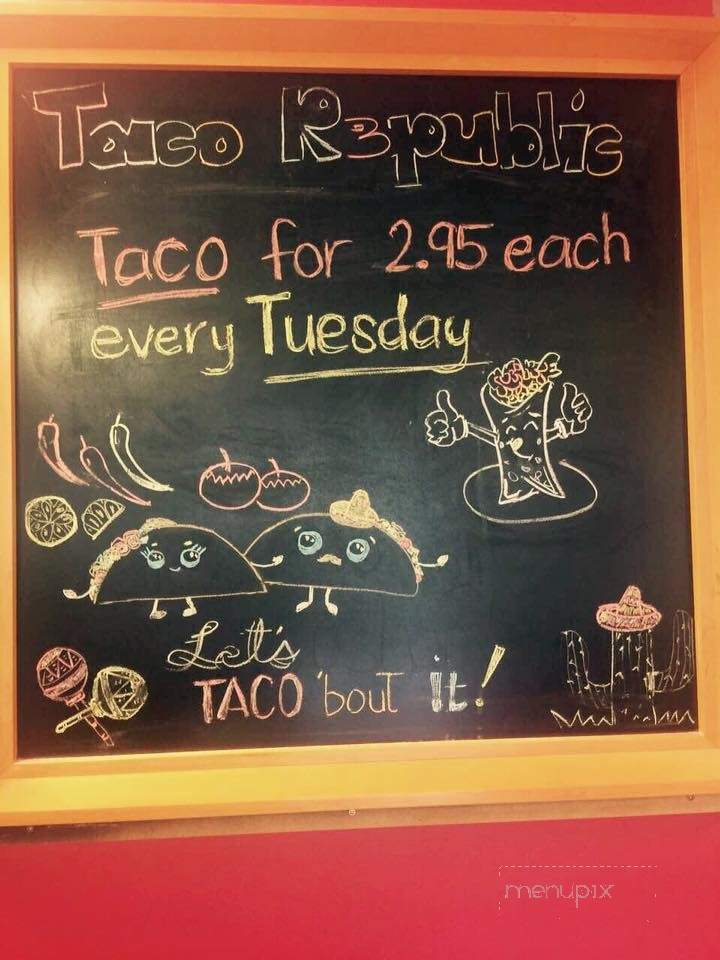 Taco R3public
Taco for 2.95 each
every Tuesday
Let's
TACO 'bout it!
menupix